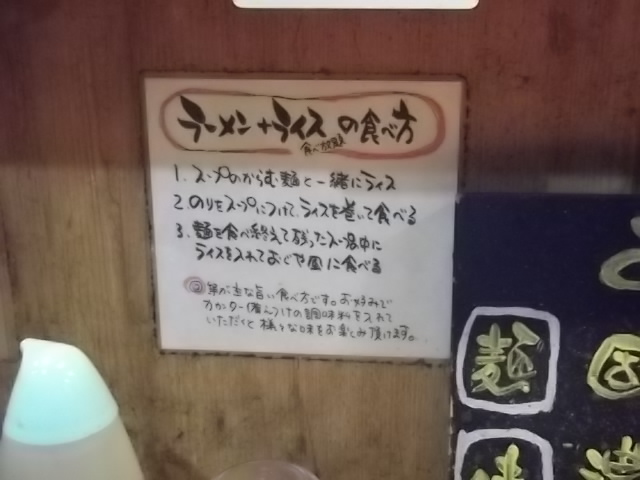 ラーメン+ライスの食べ方
食べ放題
1. スープのからむ麺と一緒にライス
2 のりをスープにつけて、ライスを巻いて食べる
3. 麺を食べ終えて残ったスープの中に
ライスを入れておじや風に食べる
単が当な旨い食べ方です。お好みで
カウンター備えつけの調味料を入れて
いただくと様々な味をお楽しみ頂けます。
麺
味
濃